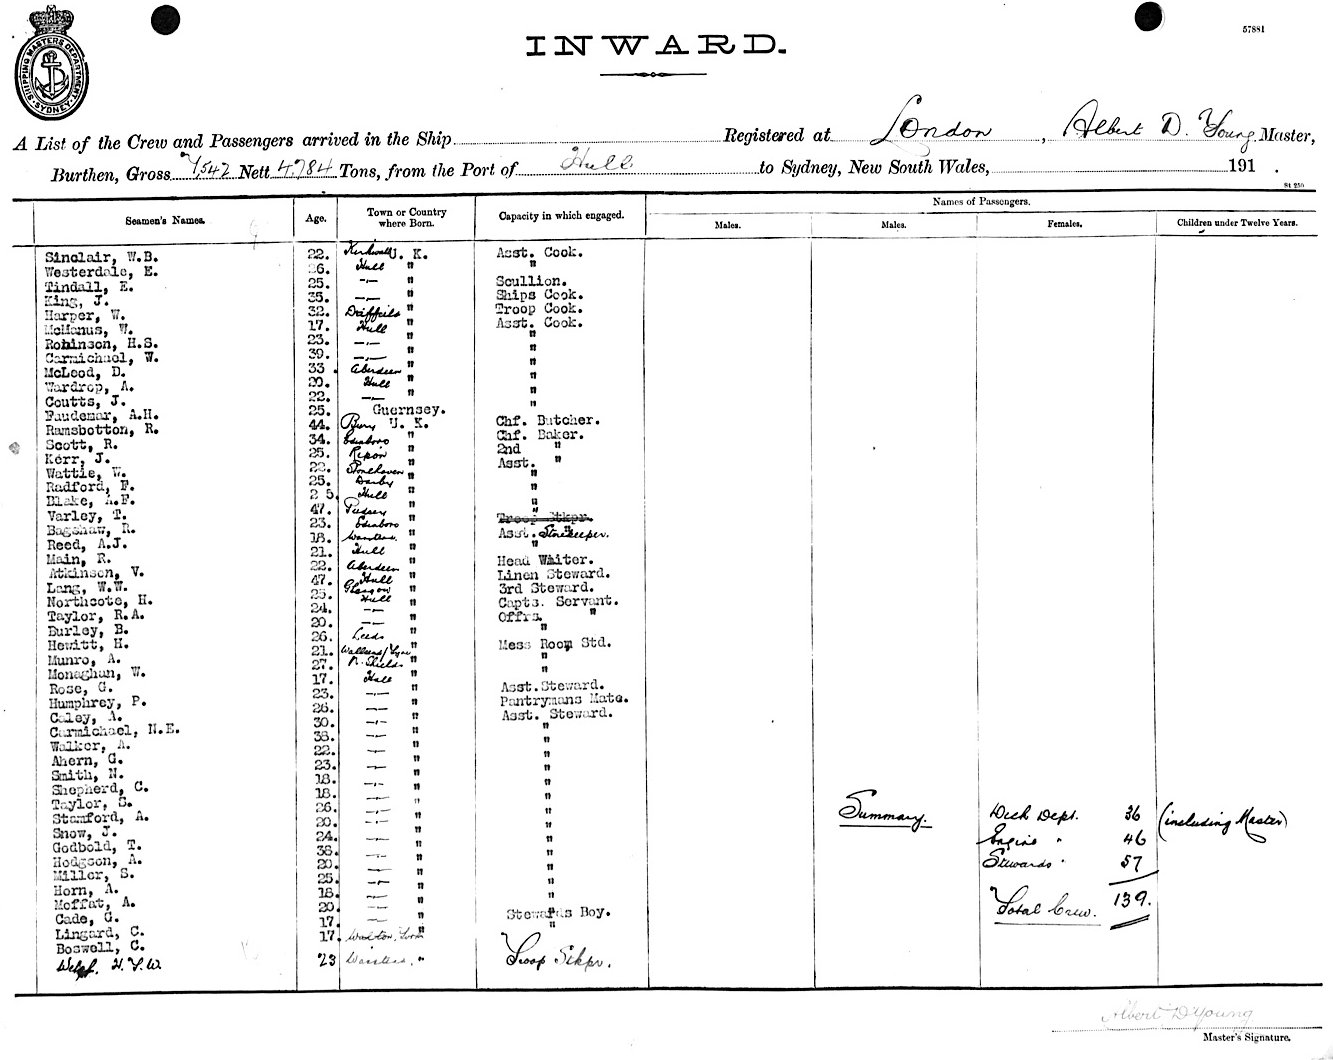 57881
INWARD.
SHIPPING MASTERS DEPARTMENT SYDNEY
A List of the Crew and Passengers arrived in the Ship Registered at London, Albert D. Young Master,
Burthen, Gross 7,542 Nett 4,784 Tons, from the Port of Hull to Sydney, New South Wales, 191 .
St 250
Seamen's Names. Age. Town or Country where Born. Capacity in which engaged. Names of Passengers.
Males. Males. Females. Children under Twelve Years.
Sinclair, W.B. 22. Kirkwall U. K. Asst. Cook.
Westerdale, E. 26. Hull " "
Tindall, E. 25. —"— " Scullion.
King, J. 35. —"— " Ships Cook.
Harper, W. 32. Driffield " Troop Cook.
McManus, W. 17. Hull " Asst. Cook.
Robinson, H.S. 23. —"— " "
Carmichael, W. 39. —"— " "
McLeod, D. 33. Aberdeen " "
Wardrop, A. 20. Hull " "
Coutts, J. 22. —"— " "
Faudemar, A.H. 25. Guernsey. "
Ramsbotton, R. 44. Bury U. K. Chf. Butcher.
Scott, R. 34. Edinboro " Chf. Baker.
Kerr, J. 25. Ripon " 2nd "
Wattie, W. 22. Stonehaven " Asst. "
Radford, F. 25. Darby " "
Blake, A.F. 25. Hull " "
Varley, T. 47. Pudsey " "
Bagshaw, R. 23. Edinboro " "
Reed, A.J. 18. " Troop Stkpr. Asst. Storekeeper.
Main, R. 21. Hull " "
Atkinson, V. 22. Aberdeen " Head Waiter.
Lang, W.W. 47. Hull " Linen Steward.
Northcote, H. 25. Glasgow " 3rd Steward.
Taylor, R.A. 24. Hull " Capts. Servant.
Burley, B. 20. —"— " Offrs. "
Hewitt, H. 26. Leeds " "
Munro, A. 21. " Mess Room Std.
Monaghan, W. 27. N. Shields " "
Rose, G. 17. Hull " "
Humphrey, P. 23. —"— " Asst. Steward.
Caley, A. 26. —"— " Pantrymans Mate.
Carmichael, N.E. 30. —"— " Asst. Steward.
Walker, A. 38. —"— " "
Ahern, G. 22. —"— " "
Smith, N. 23. —"— " "
Shepherd, C. 18. —"— " "
Taylor, S. 18. —"— " "
Stamford, A. 26. —"— " "
Snow, J. 20. —"— " "
Godbold, T. 24. —"— " "
Hodgson, A. 38. —"— " "
Miller, S. 20. —"— " "
Horn, A. 25. —"— " "
Moffat, A. 18. —"— " "
Cade, G. 20. —"— " "
Lingard, C. 17. —"— " Stewards Boy.
Boswell, C. 17. " "
H. T. W. 23 " Troop Stkpr.
Summary. Deck Dept. 36 (including Master)
Engine " 46
Stewards " 57
Total Crew. 139.
Albert D Young
Master's Signature.